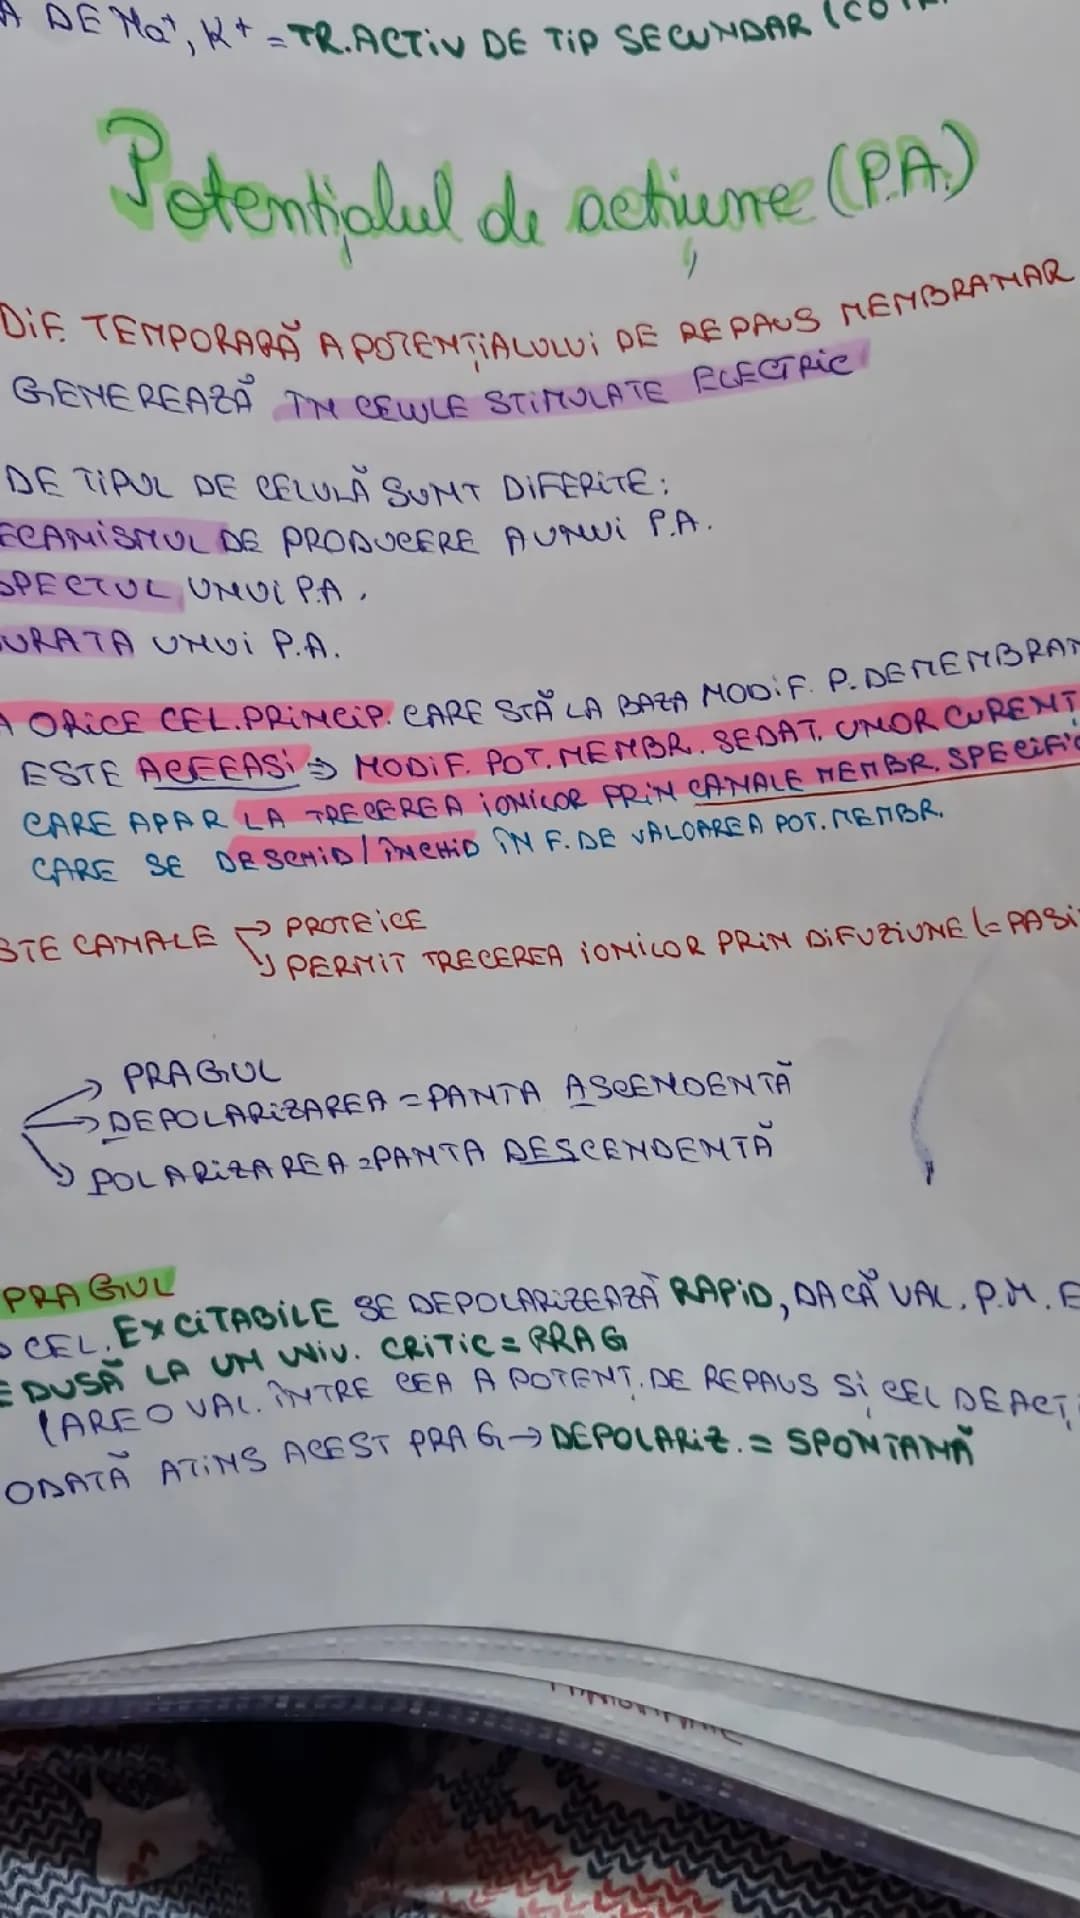 A DE Na⁺, K⁺ = TR. ACTIV DE TIP SECUNDAR
Potențialul de acțiune (P.A.)
DIF. TEMPORARĂ A POTENȚIALULUI DE REPAUS MEMBRANAR
GENEREAZĂ ÎN CELULE STIMULATE ELECTRIC
DE TIPUL DE CELULĂ SUNT DIFERITE:
ECANISMUL DE PRODUCERE A UNUI P.A.
SPECTUL UNUI P.A.
URATA UNUI P.A.
A ORICE CEL. PRINCIP. CARE STĂ LA BAZA MODIF. P. DE MEMBRAN
ESTE ACEEASI => MODIF. POT. MEMBR. SE DAT. UNOR CURENT
CARE APAR LA TRECEREA IONILOR PRIN CANALE MEMBR. SPECIFIC
CARE SE DESCHID / ÎNCHID ÎN F. DE VALOAREA POT. MEMBR.
STE CANALE → PROTEICE
↘ PERMIT TRECEREA IONILOR PRIN DIFUZIUNE (= PASI
→ PRAGUL
→ DEPOLARIZAREA = PANTA ASCENDENTĂ
↘ POLARIZAREA = PANTA DESCENDENTĂ
PRAGUL
CEL. EXCITABILE SE DEPOLARIZEAZĂ RAPID, DACĂ VAL. P.M. E
EDUSĂ LA UN NIV. CRITIC = PRAG
(ARE O VAL. ÎNTRE CEA A POTENT. DE REPAUS ȘI CEL DE ACȚ
ODATĂ ATINS ACEST PRAG → DEPOLARIZ. = SPONTANĂ